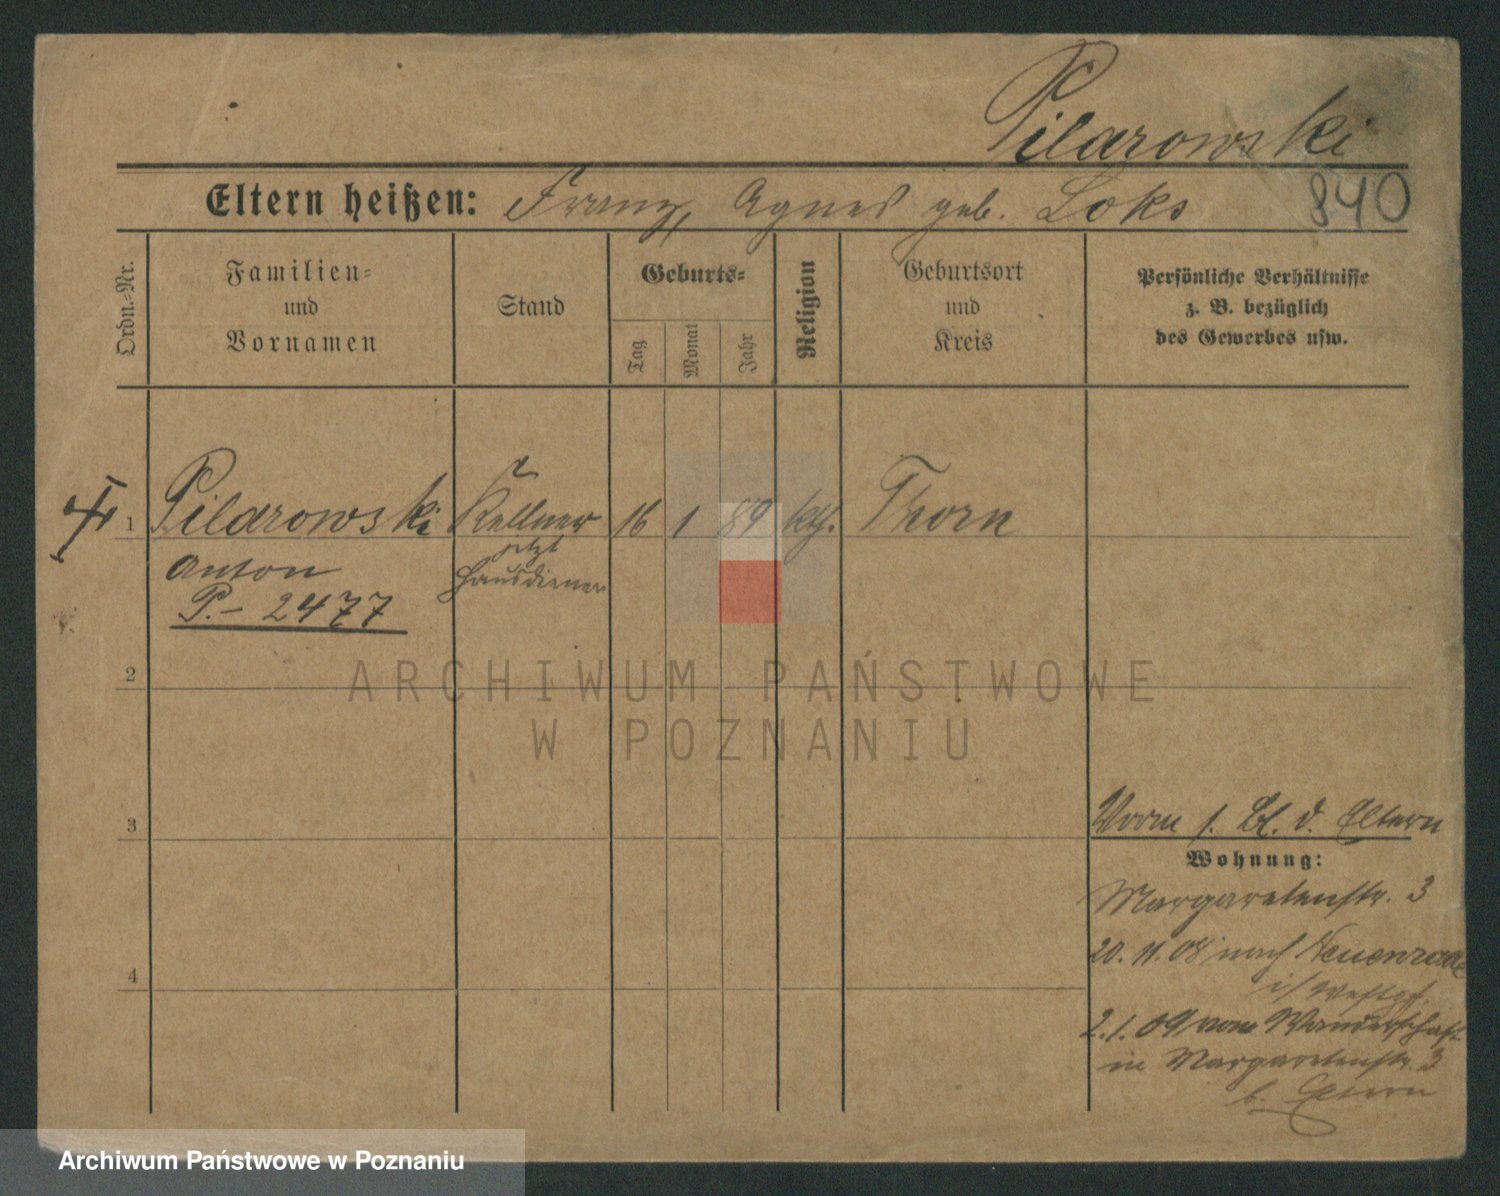 Pilarowski
840
Eltern heißen: Franz, Agnes geb. Loks
Ordn.=Nr.
Familien=
und
Vornamen
Stand
Geburts=
Tag
Monat
Jahr
Religion
Geburtsort
und
Kreis
Persönliche Verhältnisse
z. B. bezüglich
des Gewerbes usw.
1 Pilarowski Kellner 16 1 89 kth. Thorn
jetzt
Anton Hausdiener
P.- 2477
2
ARCHIWUM PAŃSTWOWE
W POZNANIU
3
Vorm s. Bl. d. Eltern
Wohnung:
Margaretenstr. 3
20. 11. 08 nach Neuenrade
4
i/ Westpf.
2. 1. 09 von Wanderschaft
in Margaretenstr. 3
b. Eltern
Archiwum Państwowe w Poznaniu